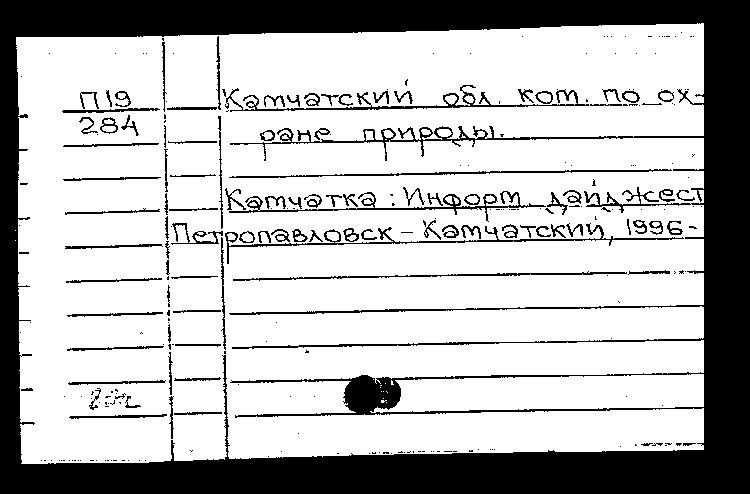 П19 Камчатский обл. ком. по ох-
284 ране природы.
Камчатка: Информ. дайджест
Петропавловск-Камчатский, 1996-